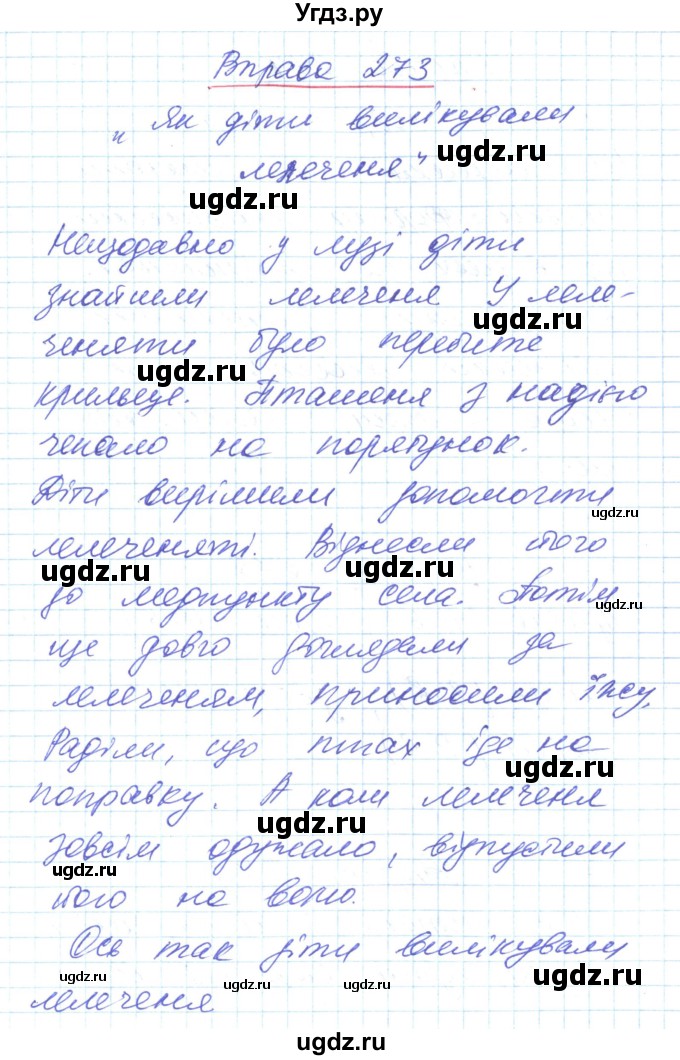 Угдз.ру
Вправа 273
„Як діти вилікували
ugdz.ru
лелеченя"
ugdz.ru
Нещодавно у лузі діти
знайшли лелеченя У леле-
ugdz.ru
ченяти було перебите
ugdz.ru
крильце. Пташеня з надією
чекало на порятунок.
Діти вирішили допомогти
ugdz.ru
лелеченяті. Віднесли його
ugdz.ru ugdz.ru
до медпункту села. Потім
ugdz.ru
ще довго доглядали за
лелеченям, приносили їжу.
Раділи, що птах іде на
ugdz.ru
поправку. А коли лелеченя
ugdz.ru
зовсім одужало, відпустили
ugdz.ru
його на волю.
Ось так діти вилікували
ugdz.ru ugdz.ru ugdz.ru ugdz.ru
лелеченя
ugdz.ru